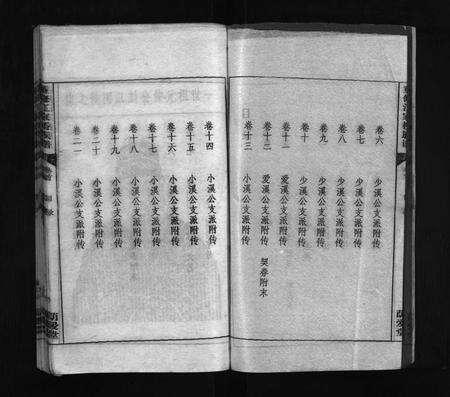 卷六 少溪公支派附传
卷七 少溪公支派附传
卷八 少溪公支派附传
卷九 少溪公支派附传
卷十 少溪公支派附传
卷十一 少溪公支派附传
卷十二 爱溪公支派附传 契券附末
卷十三 小溪公支派附传
卷十四 小溪公支派附传
卷十五 小溪公支派附传
卷十六 小溪公支派附传
卷十七 小溪公支派附传
卷十八 小溪公支派附传
卷十九 小溪公支派附传
卷二十 小溪公支派附传
卷二一 小溪公支派附传